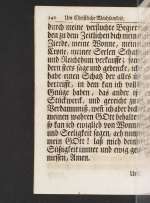 140 Um Christliche
durch meine verfluchte Begier-
den zu dem Zeitlichen dich meine
Zierde, meine Wonne, meine
Crone, meiner Seelen Schatz
und Reichthum verkauffet; son-
dern stets sage und gedencke, ich
habe einen Schatz der alles ü-
bertrifft, in dem kan ich voll
Genüge haben, das ander ist
Stückwerck, und gereicht zur
Verdammniß, weil ich aber dich
meinen wahren GOtt behalte,
so kan ich ewiglich von Wonne
und Seeligkeit sagen, ach nun
mein GOtt! laß mich deine
Süßigkeit immer und ewig ge-
niessen, Amen.